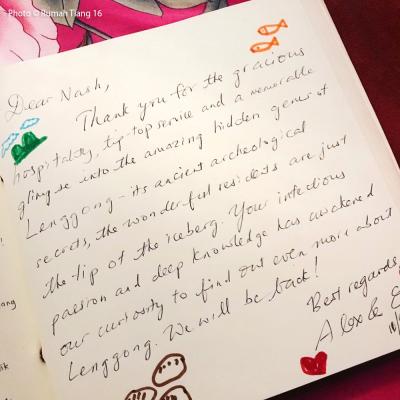 Photo © Rumah Tiang 16
Dear Nash,
Thank you for the gracious
hospitality, tip-top service and a memorable
glimpse into the amazing hidden gem of
Lenggong - its ancient archeological
secrets, the wonderful residents are just
the tip of the iceberg. Your infectious
passion and deep knowledge has awakened
our curiosity to find out even more about
Lenggong. We will be back!
Best regards,
Alex &